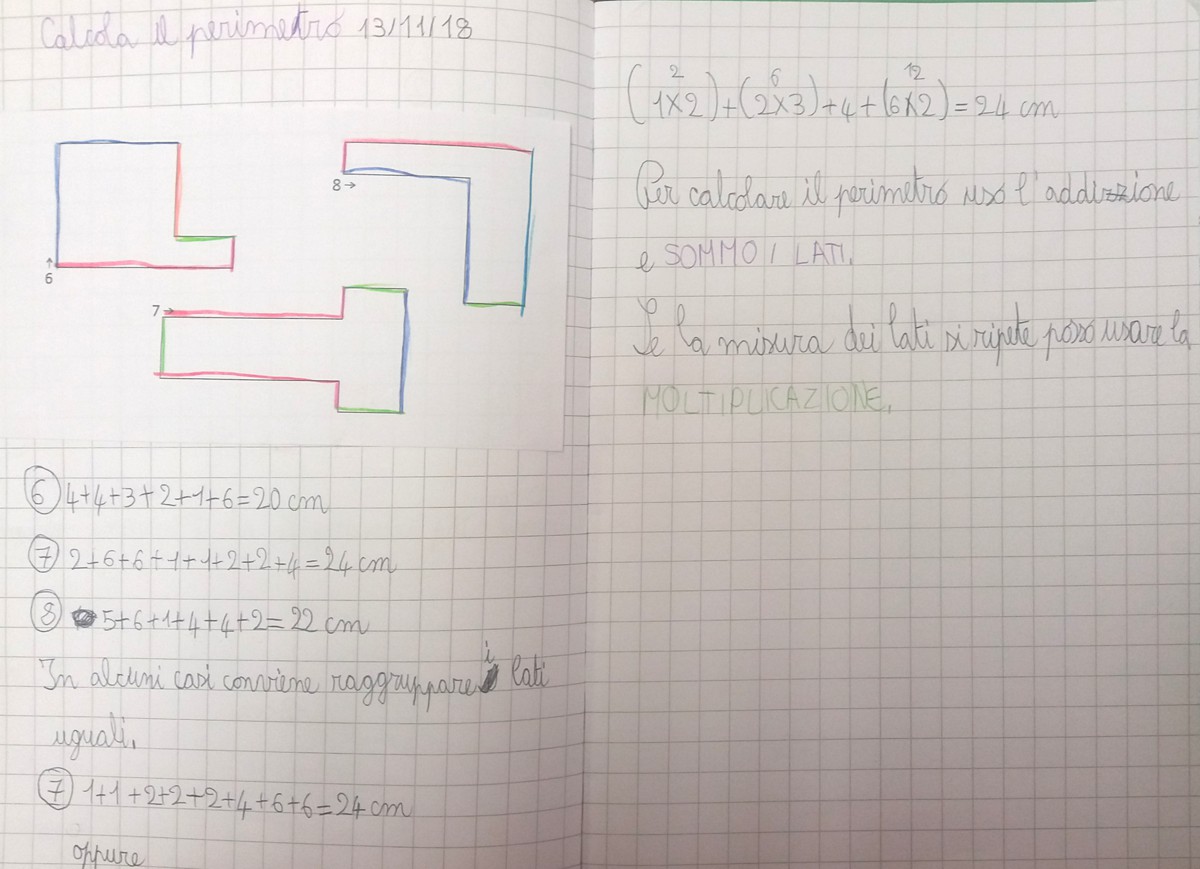 Calcola il perimetro 13/11/18
8→
↑
6
7→
⑥ 4+4+3+2+1+6=20 cm
⑦ 2+6+6+1+1+2+2+4=24 cm
⑧ 5+6+1+4+4+2=22 cm
In alcuni casi conviene raggruppare i lati
uguali.
⑦ 1+1+2+2+2+4+6+6=24 cm
oppure
2 6 12
(1×2)+(2×3)+4+(6×2)=24 cm
Per calcolare il perimetro uso l'addizzione
e SOMMO I LATI.
Se la misura dei lati si ripete posso usare la
MOLTIPLICAZIONE.